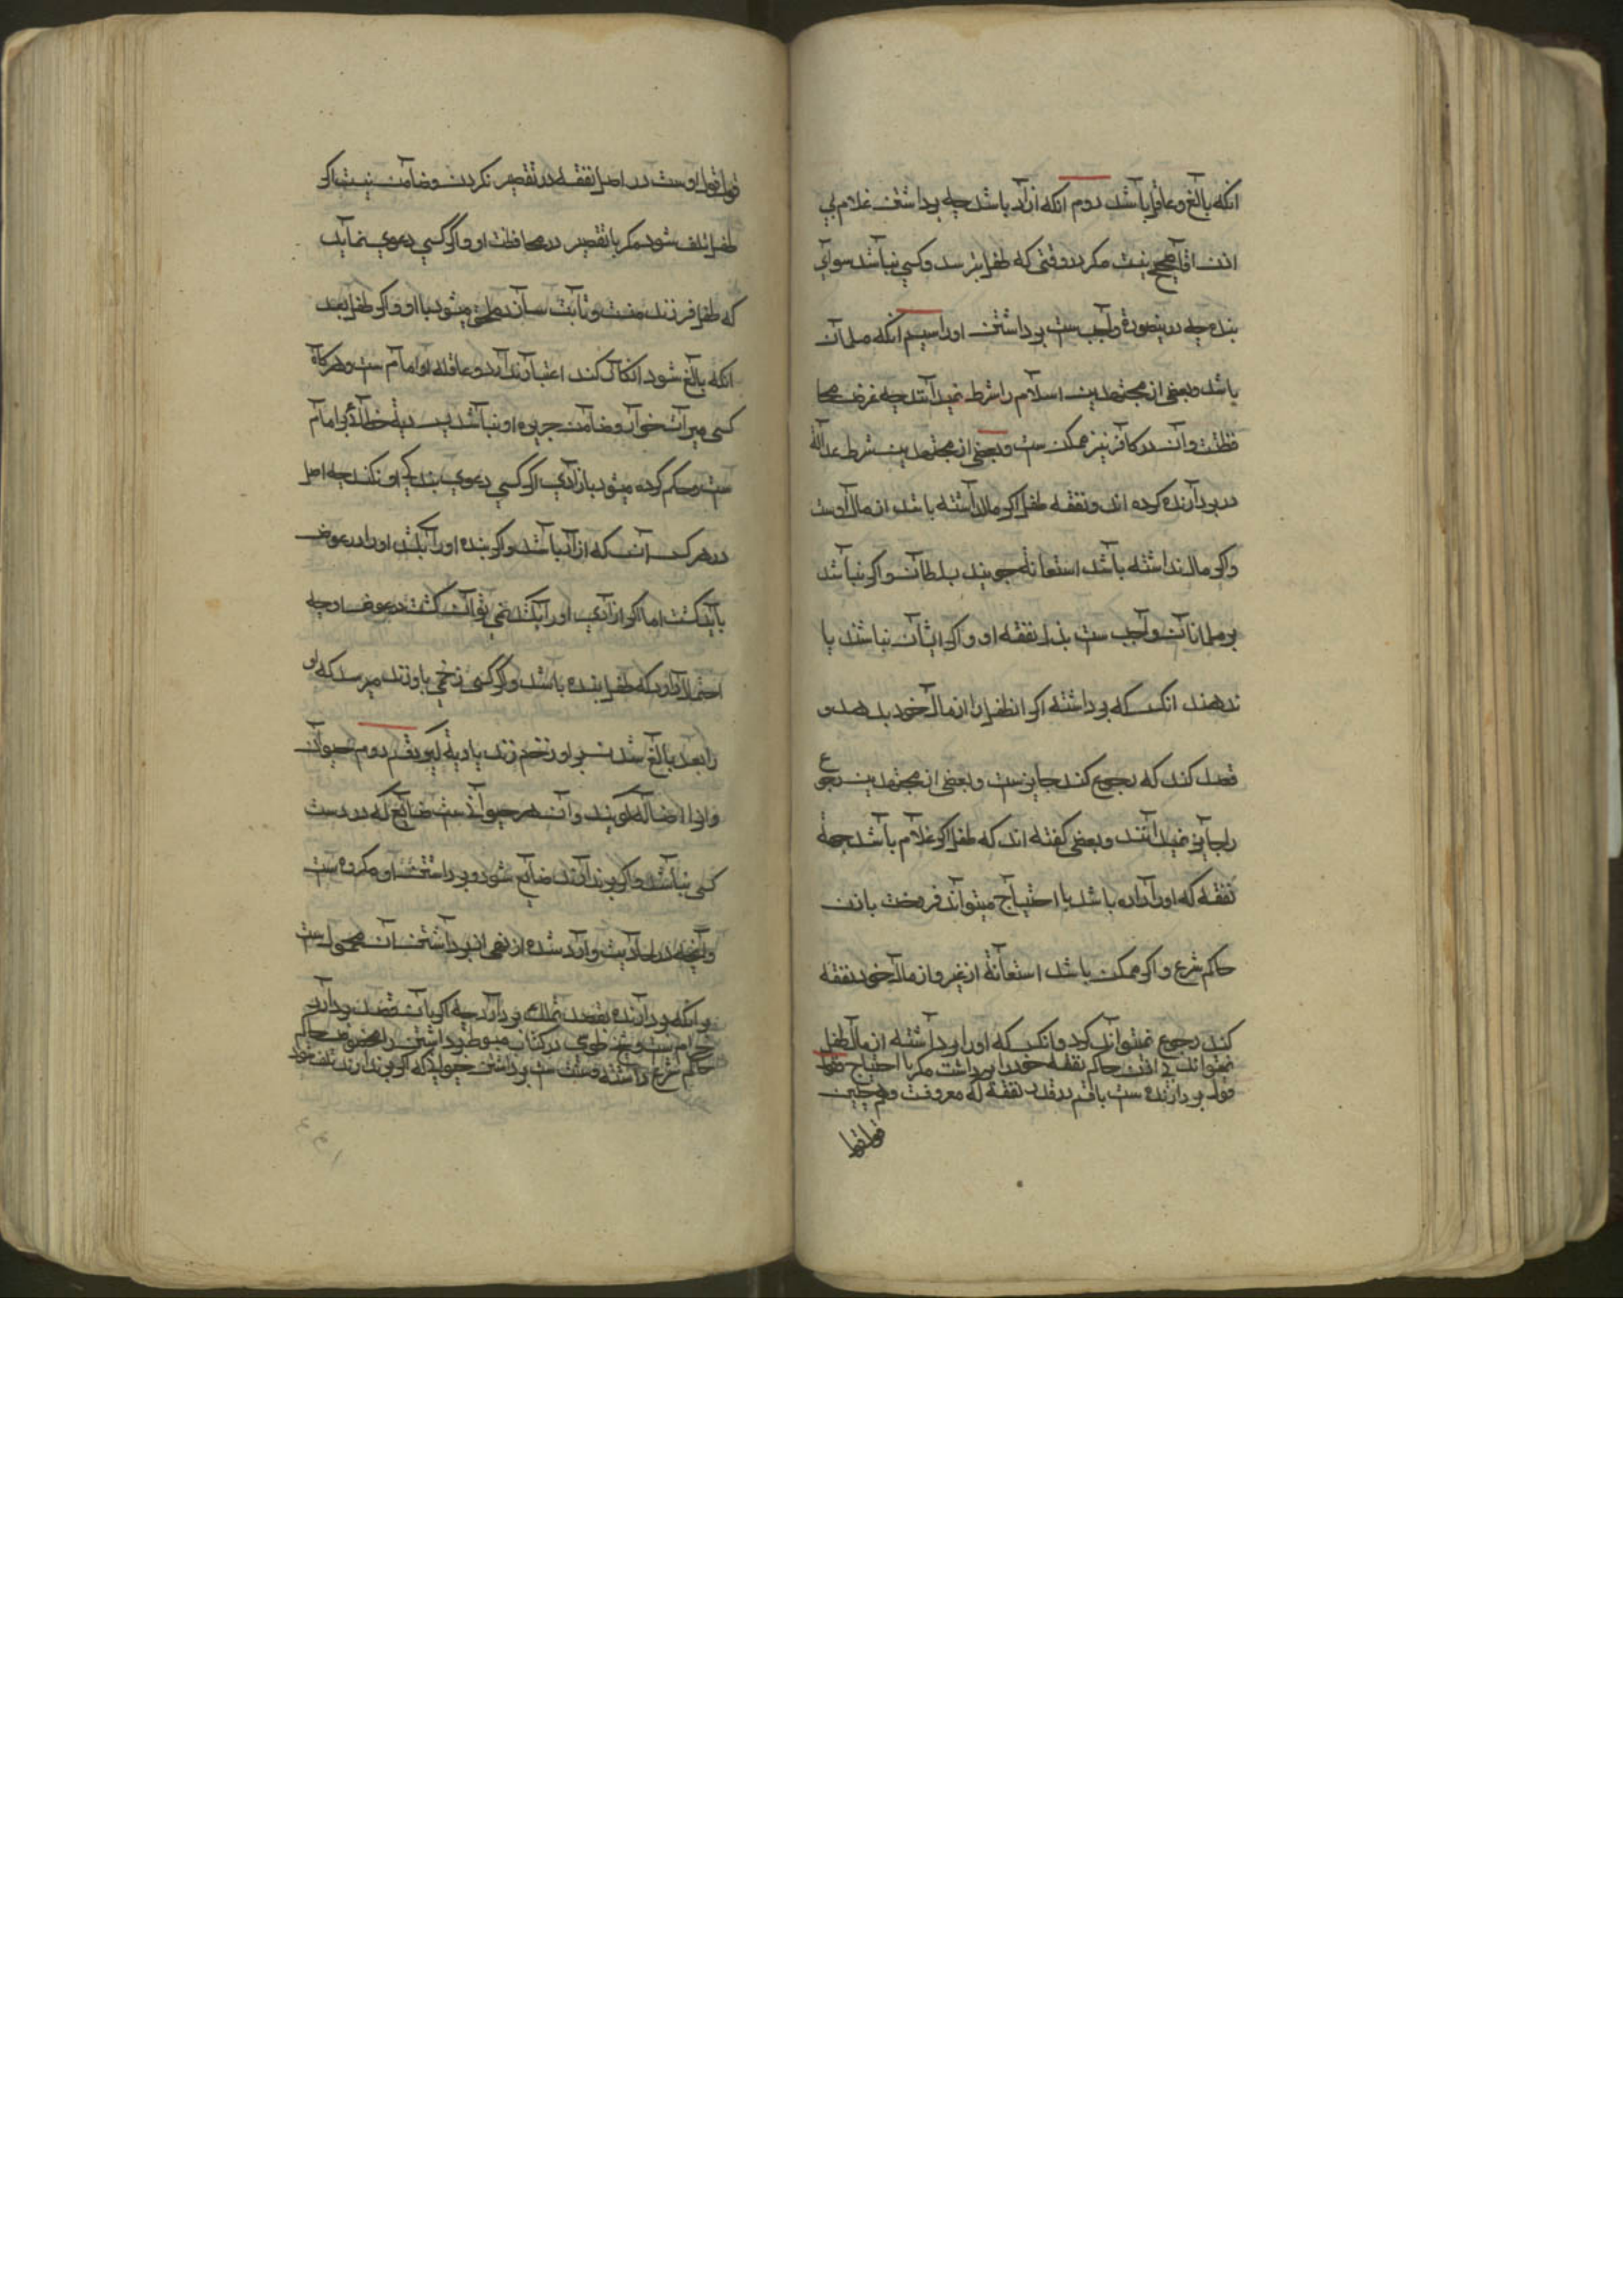 انكه بالغ وعاقل باشد دوم انكه ازاد باشد چه برداشتن غلام بي
اذن اقا صحيح نيست مكر در وقتى كه طفل بترسد وكسي نباشد سواي
بنده چه درينصورة واجب ست برداشتن او را سيم انكه مسلمان
باشد وبعضى از مجتهدين اسلام را شرط نميدانند چه غرض محا
فظتست وآن در كافر نيز ممكن ست وبعضى از مجتهدين شرط عدالة
در بردارنده كرده اند ونفقه طفل اكر مال داشته باشد از مال اوست
واكر مال نداشته باشد استعانة جويند بسلطان واكر نباشد
بر مسلمانان واجب ست بذل نفقه او واكر ايشان نباشند يا
ندهند انكس كه برداشته اكر انطفل را از مال خود بدهد و
قصد كند كه رجوع كند جايزست وبعضى از مجتهدين رجوع
را جايز نميدانند وبعضى كفته اند كه طفل اكر غلام باشد جهة
نفقه كه او را داده باشد با احتياج ميتواند فروخت باذن
حاكم شرع واكر ممكن باشد استعانة از غير واز مال خود نفقه
كند رجوع نميتواند كرد وانكس كه او را برداشته از مال طفل
نميتواند بي اذن حاكم نفقه خود را برداشت مكر با احتياج وقول
قول بردارنده ست با قسم در قدر نفقه كه معروفست وهمچنين
قول قول
قول قول اوست در اصل نفقه در تقصير نكردن وضامن نيست اكر
طفل تلف شود مكر با تقصير در محافظت او واكر كسي دعوي نمايد
كه طفل فرزند منست وثابت سازد ملحق ميشود با او واكر طفل بعد
انكه بالغ شود انكار كند اعتبار ندارد وعاقله او امام ست وهركاه
كسى ميراث خوار وضامن جريره او نباشد پس دية خطا او بر امام
ست وحكم كرده ميشود بازادي اكر كسي دعوي بندكي او نكند چه اصل
در هر كس آنست كه ازاد باشد واكر بنده او را بكشد او را در عوض
بايد كشت اما اكر ازادي او را بكشد نمي توان كشت در عوض او چه
احتمال دارد كه طفل بنده باشد واكر كسى زخمي باو زند ميرسد كه او
را بعد بالغ شدن بر او زخم زند يا دية بكيرد قسم دوم حيوان
واو را ضاله كويند وآن هر حيوانيست ضايع كه در دست
كسى نباشد واكر برندارند ضايع شود وبرداشتن او مكروه ست
وانچه در احاديث وارد شده از نهى از برداشتن آن محمول ست
بر انكه بردارنده بقصد تملك بردارد چه اكر بآن قصد بردارد
حرام ست وشيخ طوسي در كتاب مبسوط برداشتن را مخصوص حاكم
حاكم شرع داشته وسنت ست برداشتن حيواني كه اكر برندارند تلف شود